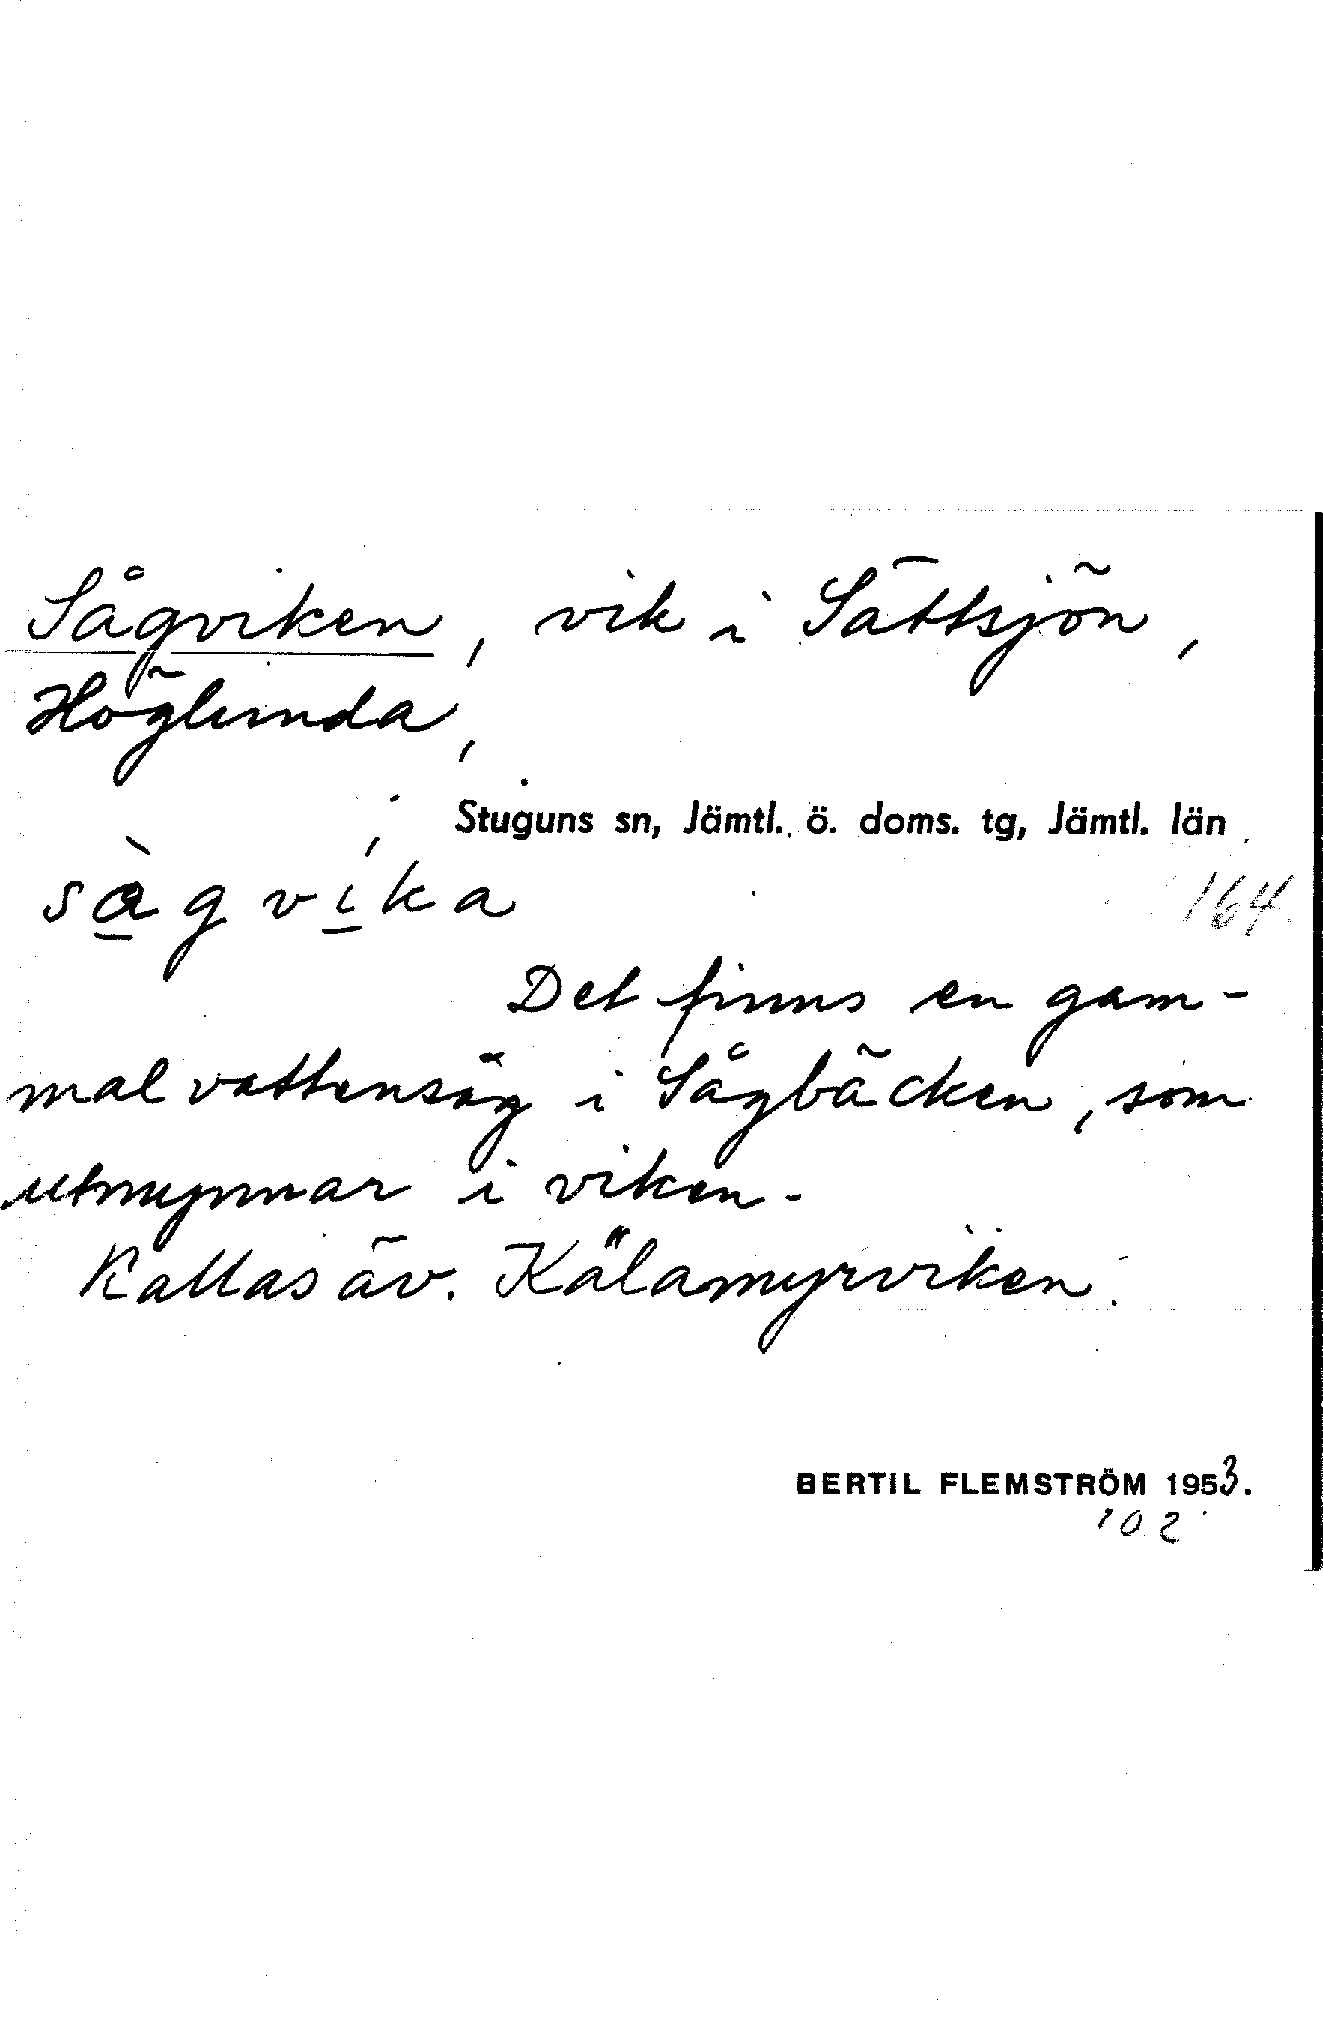 Sågviken, vik i Sättsjön,
Höglunda,
Stuguns sn, Jämtl. ö. doms. tg, Jämtl. län
164
Det finns en gam-
mal vattensåg i Sågbäcken, som
utmynnar i viken.
Kallas äv. Kälamyrviken.
BERTIL FLEMSTRÖM 1953.
102